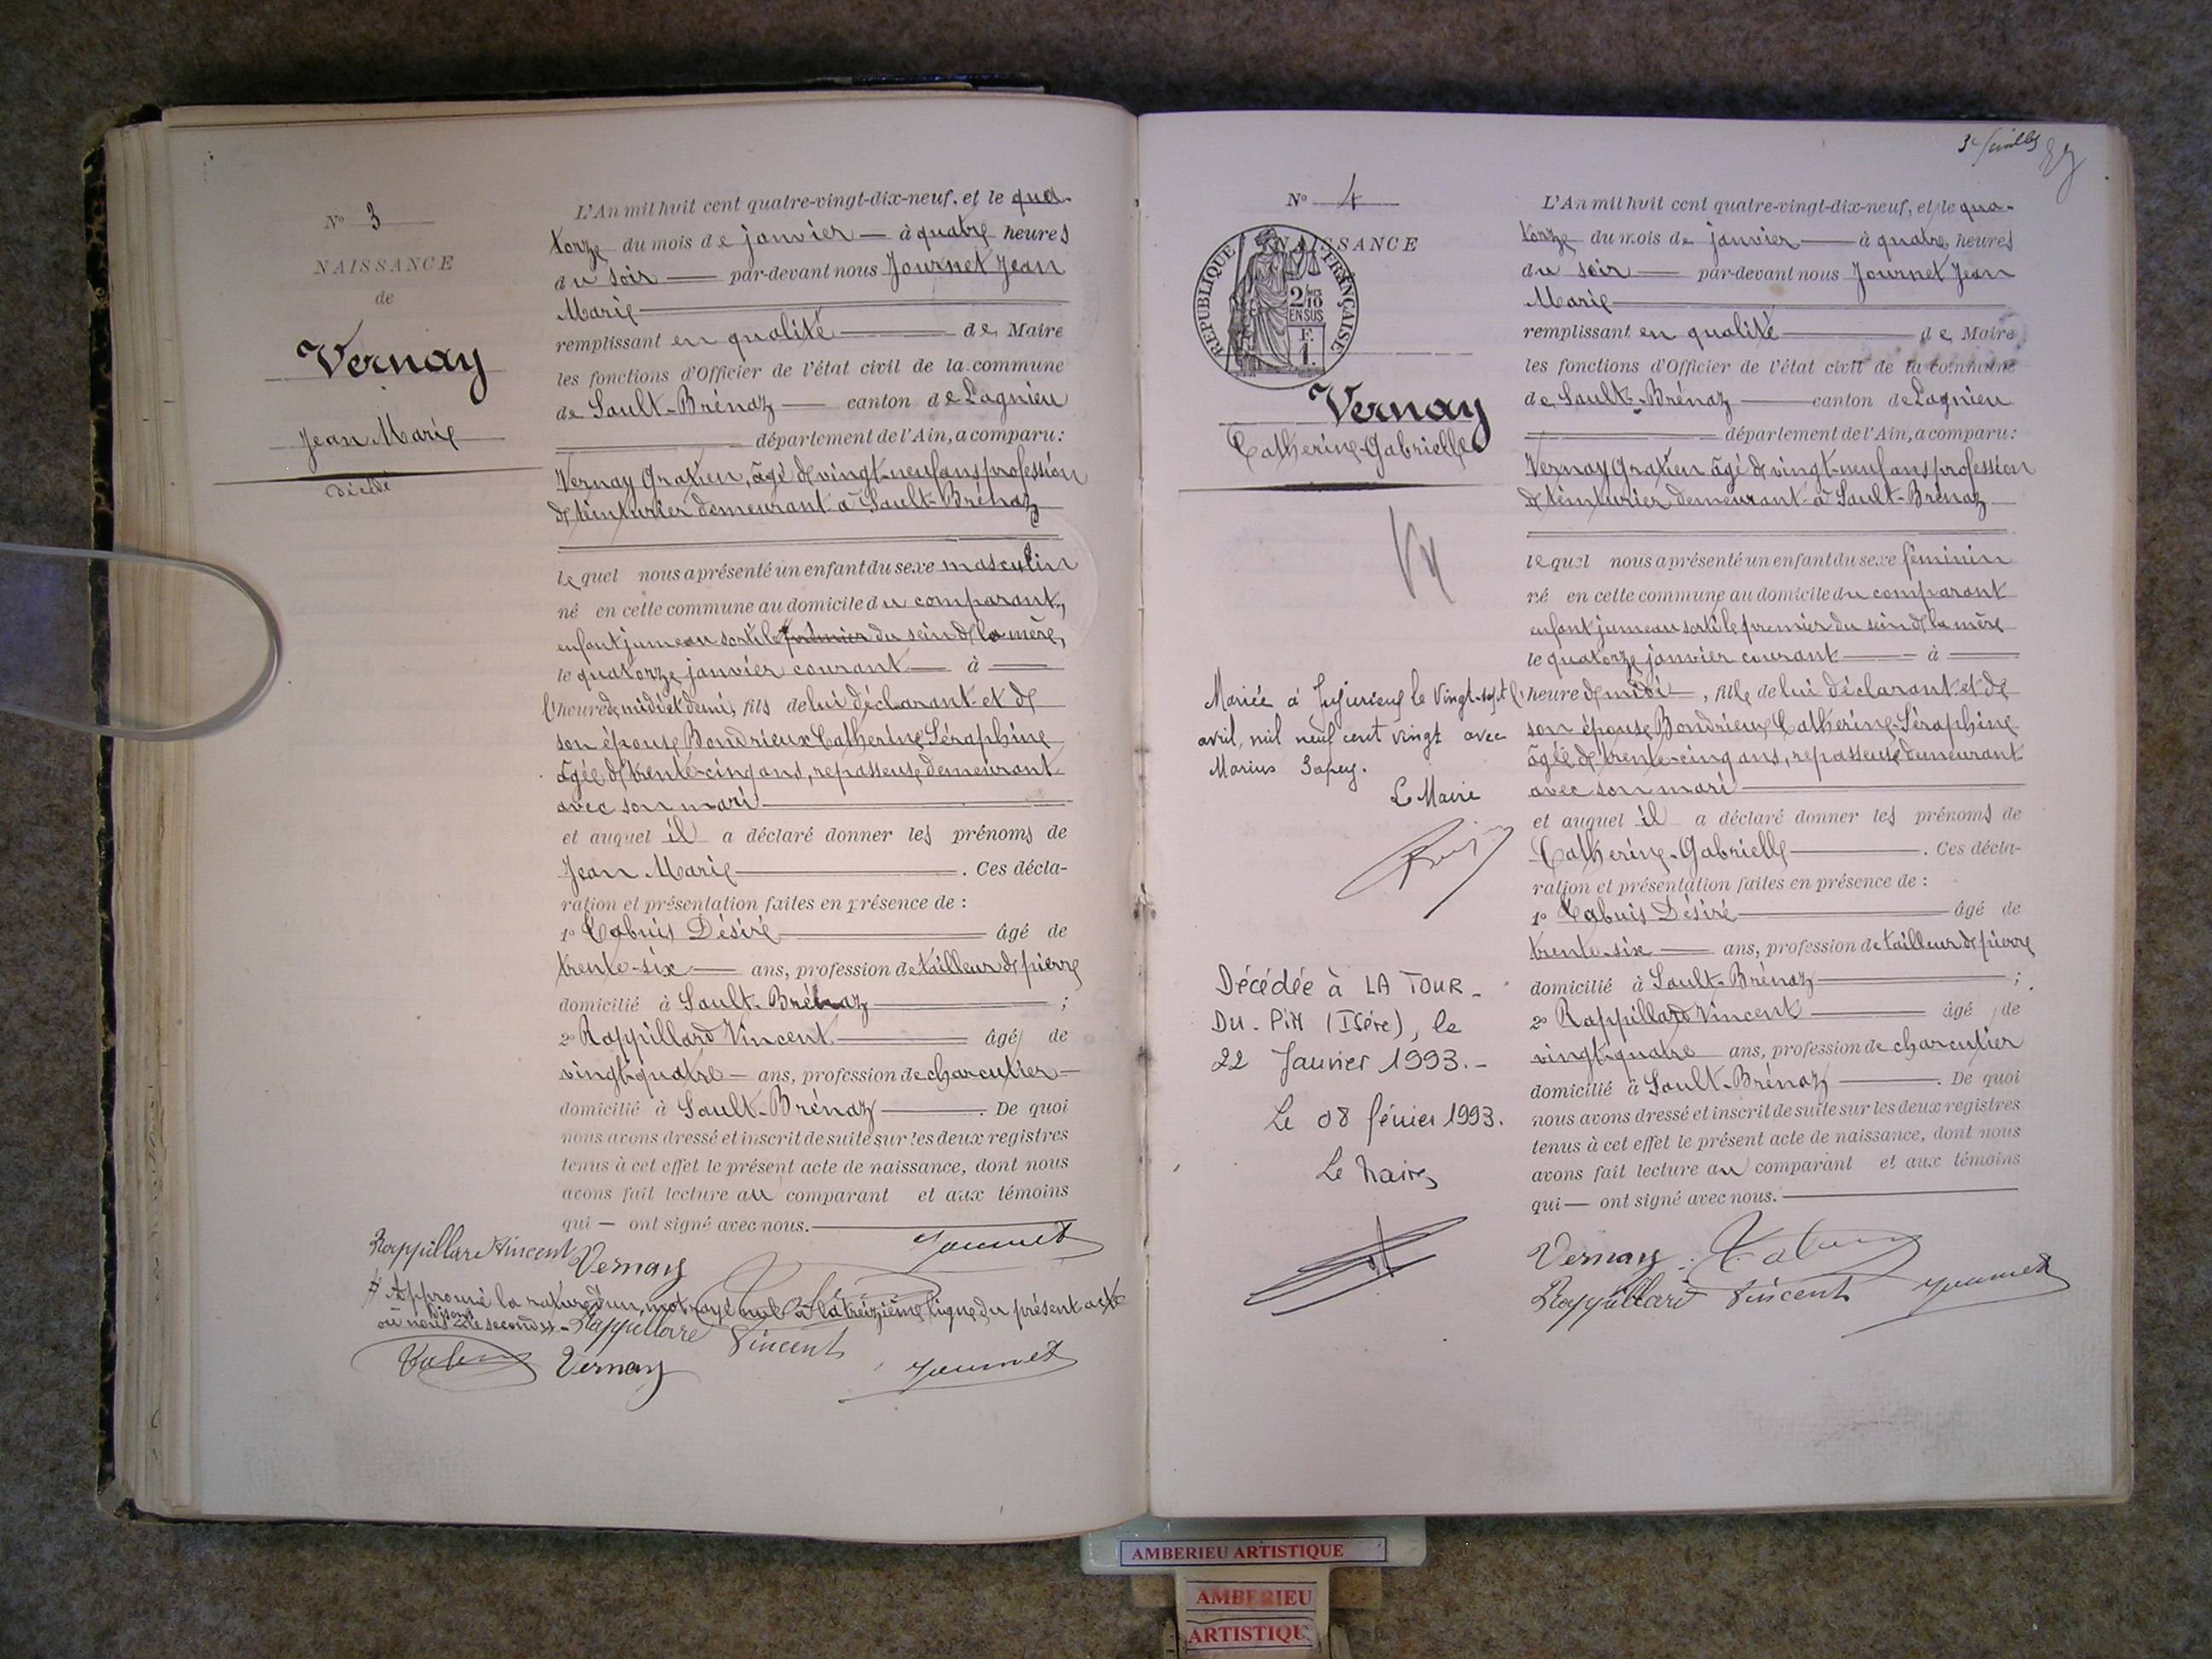 N° 3
NAISSANCE
de
Vernay
Jean Marie
décédé
L'An mil huit cent quatre-vingt-dix-neuf, et le qua-
torze du mois de janvier — à quatre heures
du soir — par-devant nous Journet Jean
Marie
remplissant en qualité — de Maire
les fonctions d'Officier de l'état civil de la commune
de Sault-Brénaz — canton de Lagnieu
département de l'Ain, a comparu :
Vernay Gratien, âgé de vingt-neuf ans profession
de teinturier demeurant à Sault-Brénaz
lequel nous a présenté un enfant du sexe masculin
né en cette commune au domicile du comparant,
enfant jumeau sorti le premier du sein de la mère,
le quatorze janvier courant — à —
l'heure de midi et demi, fils de lui déclarant et de
son épouse Bondrieux Catherine Séraphine
âgée de trente-cinq ans, repasseuse demeurant
avec son mari
et auquel il a déclaré donner les prénoms de
Jean Marie — . Ces décla-
ration et présentation faites en présence de :
1° Cabuis Désiré — âgé de
trente-six — ans, profession de tailleur de pierre
domicilié à Sault-Brénaz — ;
2° Rappillard Vincent — âgé de
vingt-quatre — ans, profession de charcutier —
domicilié à Sault-Brénaz — . De quoi
nous avons dressé et inscrit de suite sur les deux registres
tenus à cet effet le présent acte de naissance, dont nous
avons fait lecture au comparant et aux témoins
qui — ont signé avec nous.
Rappillard Vincent Vernay Journet
Approuvé la rature d'un mot rayé nul à la treizième ligne du présent acte
où nous disons « le second » - Rappillard Vincent
Vernay Journet
3e feuillet
N° 4
NAISSANCE
REPUBLIQUE FRANÇAISE
2/10 EN SUS
F. 1.
Vernay
Catherine-Gabrielle
Mariée à Jujurieux le vingt-sept
avril, mil neuf cent vingt avec
Marius
Le Maire
Décédée à LA TOUR-
DU-PIN (Isère), le
22 Janvier 1993.-
Le 08 février 1993.
Le Maire
L'An mil huit cent quatre-vingt-dix-neuf, et le qua-
torze du mois de janvier — à quatre heures
du soir — par-devant nous Journet Jean
Marie
remplissant en qualité — de Maire
les fonctions d'Officier de l'état civil de la commune
de Sault-Brénaz — canton de Lagnieu
département de l'Ain, a comparu :
Vernay Gratien âgé de vingt-neuf ans profession
de teinturier demeurant à Sault-Brénaz
lequel nous a présenté un enfant du sexe féminin
né en cette commune au domicile du comparant
enfant jumeau sorti le premier du sein de la mère
le quatorze janvier courant — à —
l'heure de midi —, fille de lui déclarant et de
son épouse Bondrieux Catherine-Séraphine
âgée de trente-cinq ans, repasseuse demeurant
avec son mari
et auquel il a déclaré donner les prénoms de
Catherine-Gabrielle — . Ces décla-
ration et présentation faites en présence de :
1° Cabuis Désiré — âgé de
trente-six — ans, profession de tailleur de pierre
domicilié à Sault-Brénaz — ;
2° Rappillard Vincent — âgé de
vingt-quatre ans, profession de charcutier
domicilié à Sault-Brénaz — . De quoi
nous avons dressé et inscrit de suite sur les deux registres
tenus à cet effet le présent acte de naissance, dont nous
avons fait lecture au comparant et aux témoins
qui — ont signé avec nous.
Vernay
Rappillard Vincent Journet
AMBERIEU ARTISTIQUE
AMBERIEU
ARTISTIQUE